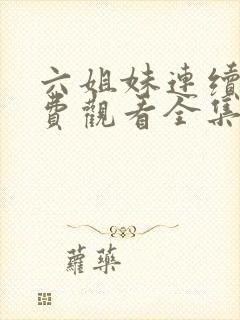 六姐妹連續
費觀看全集
蘿藥